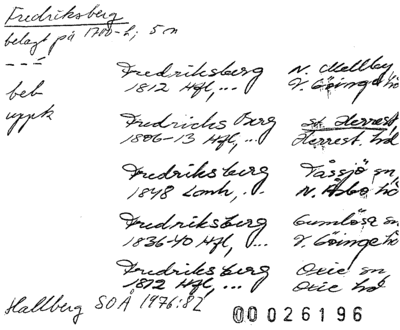 Fredriksberg
belagt på 1700-t; 5 n
Fredriksberg N. Mellby
beb 1812 Hfl,... V. Göinge hd
uppk Fredrichs Berg St. Herrest.
1806-13 Hfl,... Herrest. hd
Fredriksberg Tåssjö sn,
1848 Lonh,.. N. Åsbo hd
Fredriksberg Gumlösa sn,
1836-40 Hfl,... V. Göinge hd
Fredriksberg Oxie sn,
1812 Hfl,... Oxie hd
Hallberg SOÅ 1976:82
00026196